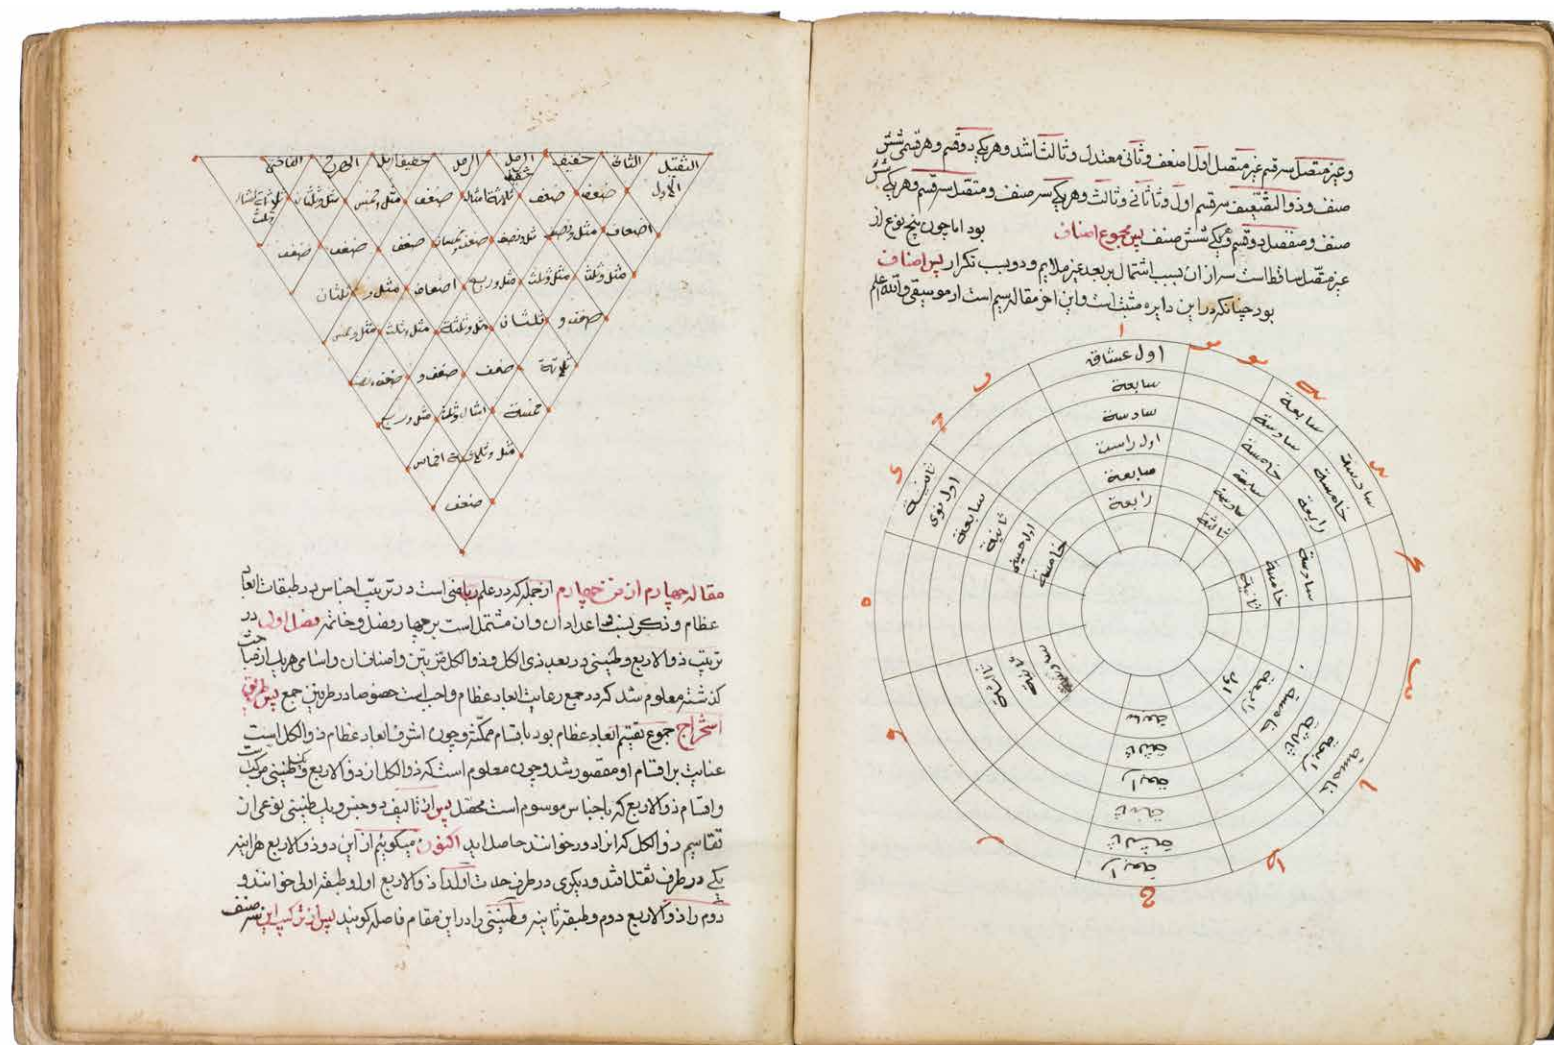 وغیر متصل سه قسم غیر متصل اول اضعف و ثانی معتدل و ثالث اشد و هر یکی دو قسم و هر قسمی شش
صنف و ذو التضعیف سه قسم اول و ثانی و ثالث و هر یکی سه صنف و متصل سه قسم و هر یکی شش
صنف و منفصل دو قسم و هر یکی شش صنف پس مجموع اصناف بود اما چون پنج نوع از
غیر متصل ساقط است سه از آن بسبب اشتمال بر بعد غیر ملایم و دو بسبب تکرار پس اصناف
بود چنانکه در این دایره مثبت است و این آخر مقاله سیم است از موسیقی والله اعلم
اول عشاق
سابعة
سادسة
اول راست
سابعة
رابعة
سابعة
سادسة
خامسة
سابعة
سادسة
ثالثة
سادسة
خامسة
رابعة
سادسة
خامسة
ثانیة
خامسة
رابعة
ثالثة
خامسة
رابعة
اول
رابعة
ثالثة
ثانیة
رابعة
ثانیة
سابعة
ثالثة
ثانیة
سادسة
ثانیة
اول نوی
سابعة
ثانیة
اول حسینی
خامسة
الثقیل الاول
الثانی
خفیف
الرمل
الرمل
خفیف
الهزج
الفاختی
ضعف
ضعف
ثلاثة امثال
ضعف
مثل و خمس
مثل و ثلثان
اضعاف
مثل و نصف
مثل و نصف
ضعف
ضعف
ضعف
مثل و ثلث
مثل و ثلث
مثل و ربع
اضعاف
مثل و
ثلثان
ضعف و
ثلثان
مثل و ثلثة
مثل و ثلث
مثل و خمس
ثلاثة
ضعف
ضعف و
ضعف و نصف
خمسة
امثال و ثلث
مثل و ربع
مثل و ثلاثة اخماس
ضعف
مقاله چهارم از فن چهارم از جمله که در علم ریاضی است در ترتیب اجناس در طبقات ابعاد
عظام و ذکر نسب و اعداد آن و آن مشتمل است بر چهار فصل و خاتمه فصل اول در
ترتیب ذو الاربع و طنینی در بعد ذی الکل و ذو الکل مرتین و اصناف آن و اسامی هر یک از مباحث
گذشته معلوم شد که در جمع رعایت ابعاد عظام واجب است خصوصا در طریق جمع پس طریق
استخراج جموع تقسیم ابعاد عظام بود باقسام ممکنه و چون اشرف ابعاد عظام ذو الکل است
عنایت بر اقسام او مقصور شد و چون معلوم است که ذو الکل از دو ذو الاربع و یک طنینی مرکب است
و اقسام ذو الاربع که باجناس موسوم است محصل پس از تالیف دو جنس و یک طنینی نوعی از
تقاسیم ذو الکل که آنرا دور خوانند حاصل آید اکنون میگوئیم از این دو ذو الاربع هر آینه
یکی در طرف ثقل افتد و دیگری در طرف حدت اول را ذو الاربع اول و طبقه اولی خوانند و
دوم را ذو الاربع دوم و طبقه ثانیه و طنینی را در این مقام فاصله گویند پس از ترکیب این سه صنف